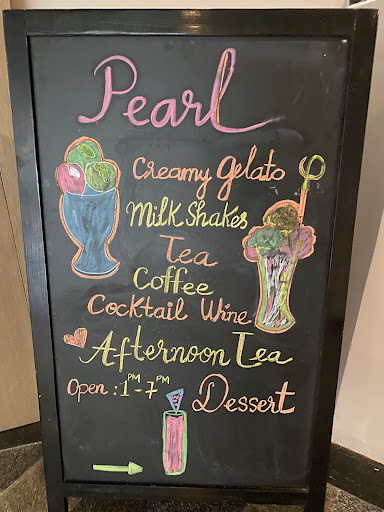 Pearl
Creamy Gelato
Milk Shakes
Tea
Coffee
Cocktail Wine
Afternoon Tea
Open : 1PM - 7PM Dessert